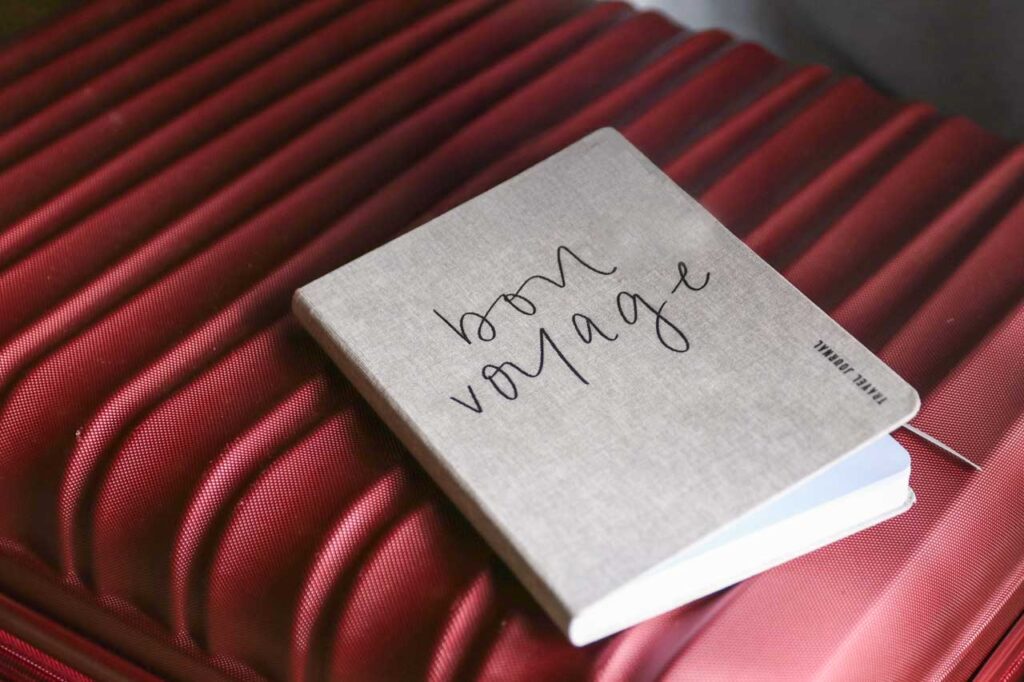 bon
voyage
TRAVEL JOURNAL